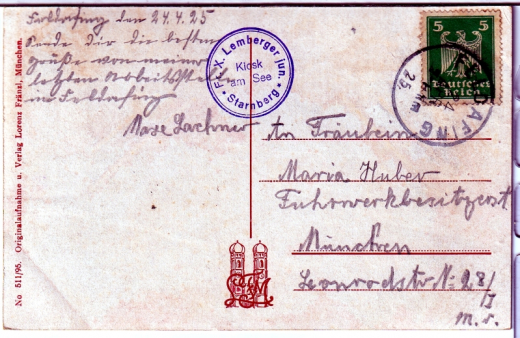 Feldafing den 24.4.25
Sende Dir die besten
Grüße von meiner
letzten Arbeitsstelle
in Feldafing
Max Lachner
F. X. Lemberger jun.
Kiosk
am See
Starnberg
5 5
Deutsches
Reich
DAFING
25.
An Fräulein
Maria Huber
Fuhrwerkbesitzerst
München
Leonrodstr. Nº 28/I
M. r.
No 511/95. Originalaufnahme u. Verlag Lorenz Fränzl, München.